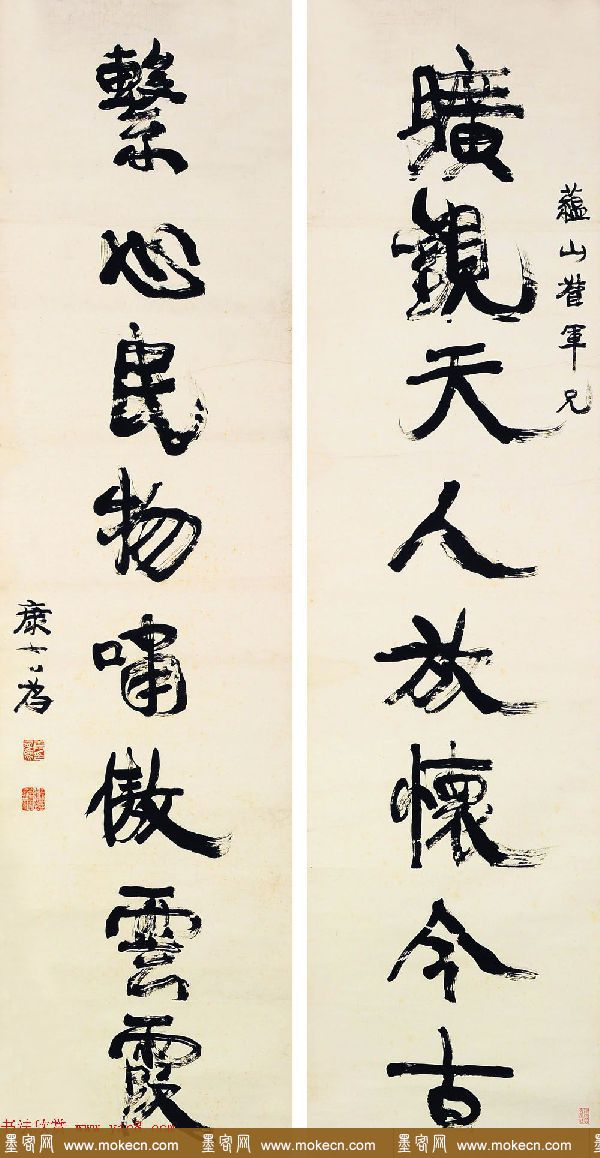 曠觀天人放懷今古
蘊山督軍兄
繫心民物嘯傲雲霞
康有為
墨客网 www.mokecn.com 墨客网 www.mokecn.com 墨客网 www.mokecn.com